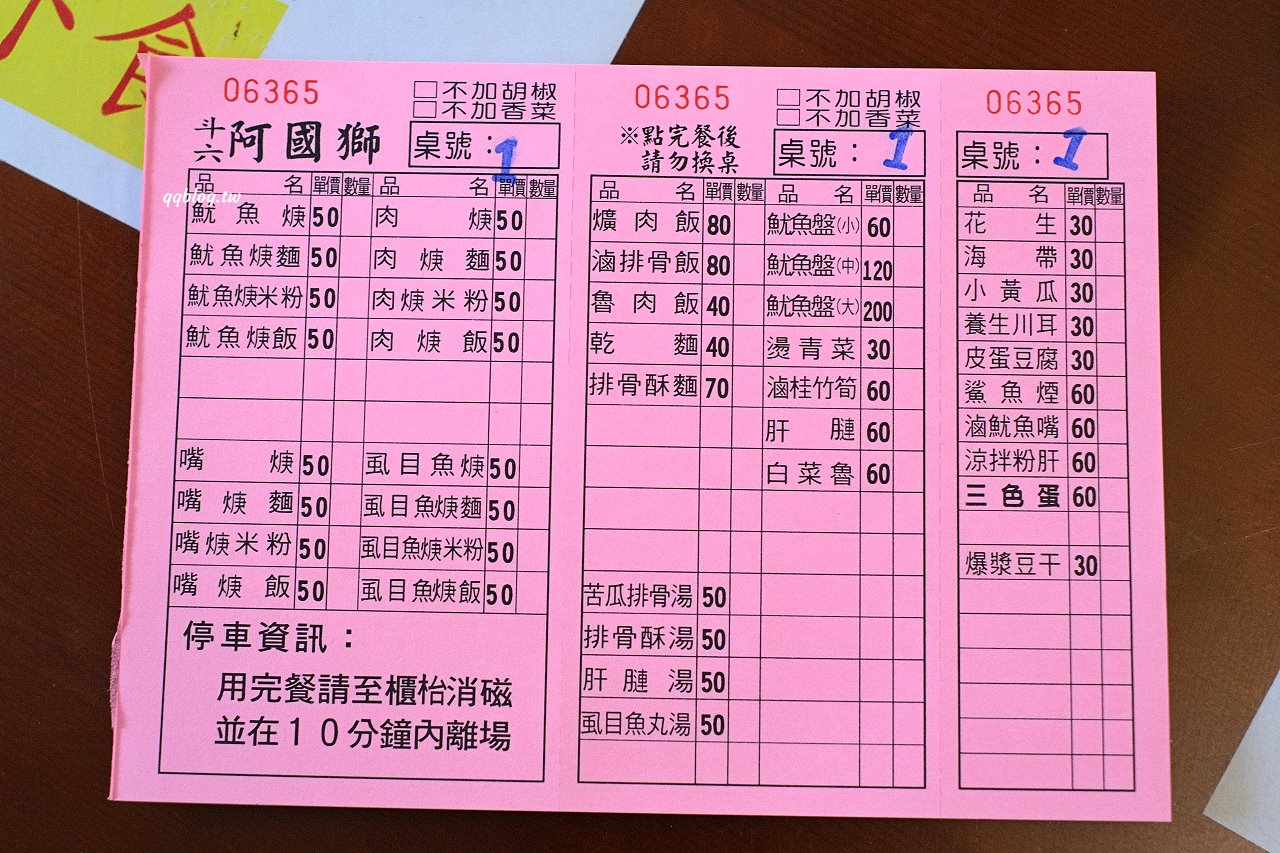 食
06365
□不加胡椒
□不加香菜
斗六阿國獅
桌號：1
qqblog.tw
品名 單價 數量 品名 單價 數量
魷魚焿 50 肉焿 50
魷魚焿麵 50 肉焿麵 50
魷魚焿米粉 50 肉焿米粉 50
魷魚焿飯 50 肉焿飯 50
嘴焿 50 虱目魚焿 50
嘴焿麵 50 虱目魚焿麵 50
嘴焿米粉 50 虱目魚焿米粉 50
嘴焿飯 50 虱目魚焿飯 50
停車資訊：
用完餐請至櫃枱消磁
並在10分鐘內離場
06365
□不加胡椒
□不加香菜
※點完餐後
請勿換桌
桌號：1
品名 單價 數量 品名 單價 數量
爌肉飯 80 魷魚盤(小) 60
滷排骨飯 80 魷魚盤(中) 120
魯肉飯 40 魷魚盤(大) 200
乾麵 40 燙青菜 30
排骨酥麵 70 滷桂竹筍 60
肝膁 60
白菜魯 60
苦瓜排骨湯 50
排骨酥湯 50
肝膁湯 50
虱目魚丸湯 50
06365
桌號：1
品名 單價 數量
花生 30
海帶 30
小黃瓜 30
養生川耳 30
皮蛋豆腐 30
鯊魚煙 60
滷魷魚嘴 60
涼拌粉肝 60
三色蛋 60
爆漿豆干 30